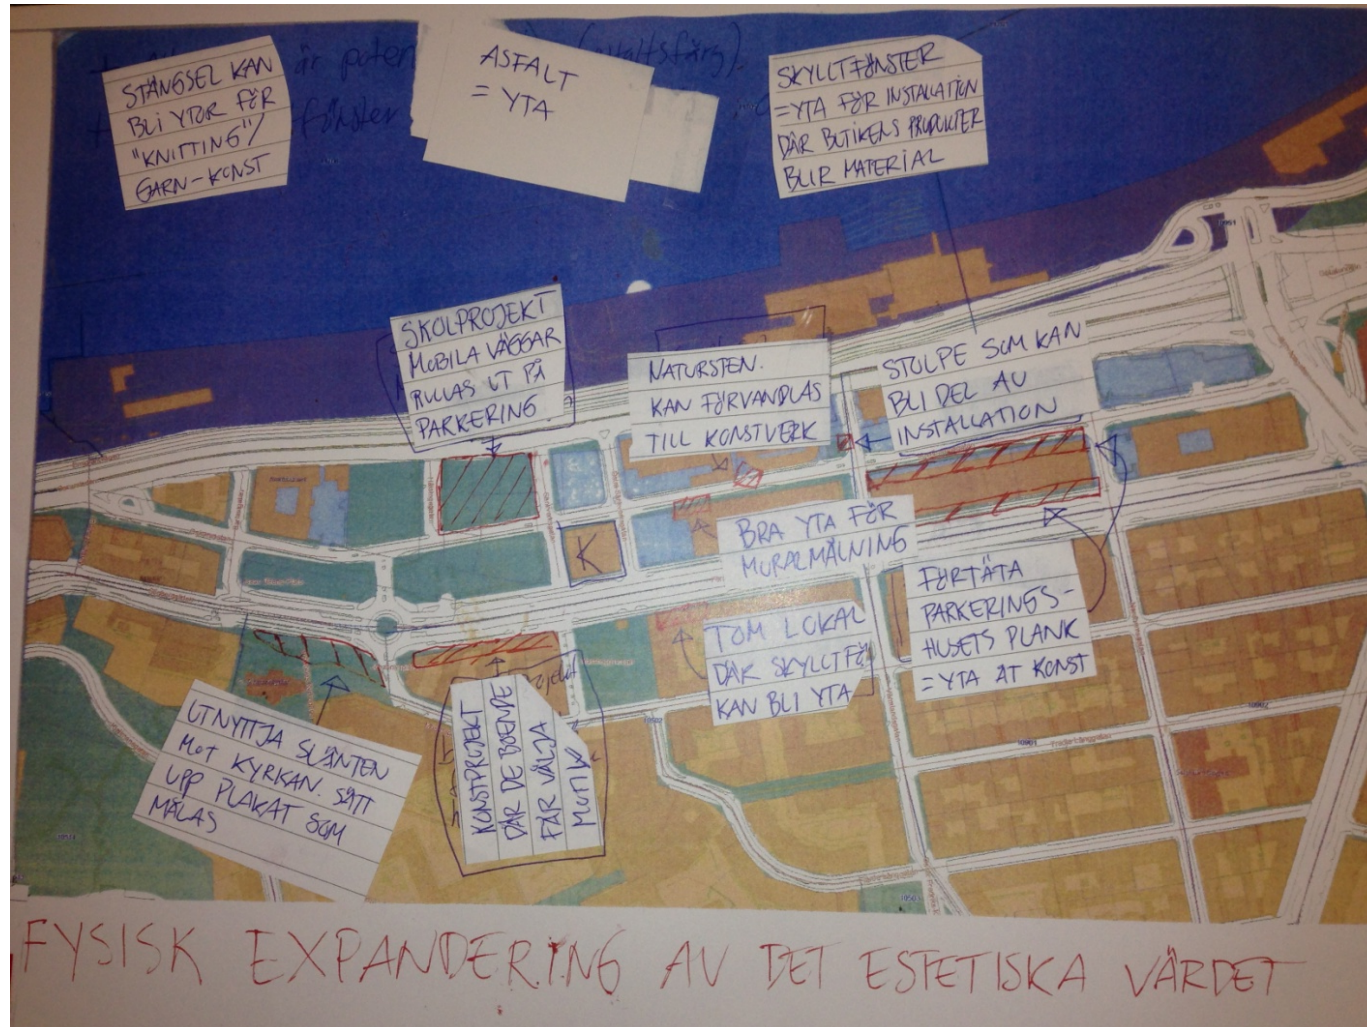 STÄNGSEL KAN
BLI YTOR FÖR
"KNITTING"/
GARN-KONST
är
ASFALT
= YTA
SKYLLTFÖNSTER
= YTA FÖR INSTALLATION
DÄR BUTIKENS PRODUKTER
BLIR MATERIAL
SKOLPROJEKT
MOBILA VÄGGAR
RULLAS UT PÅ
PARKERING
NATURSTEN.
KAN FÖRVANDLAS
TILL KONSTVERK
STOLPE SOM KAN
BLI DEL AV
INSTALLATION
K
BRA YTA FÖR
MURALMÅLNING
FÖRTÄTA
PARKERINGS-
HUSETS PLANK
= YTA ÅT KONST
TOM LOKAL
DÄR SKYLLTFÖ
KAN BLI YTA
UTNYTTJA SLÄNTEN
MOT KYRKAN. SÄTT
UPP PLAKAT SOM
MÅLAS
KONSTPROJEKT
DÄR DE BOENDE
FÅR VÄLJA
MOTIV
FYSISK EXPANDERING AV DET ESTETISKA VÄRDET